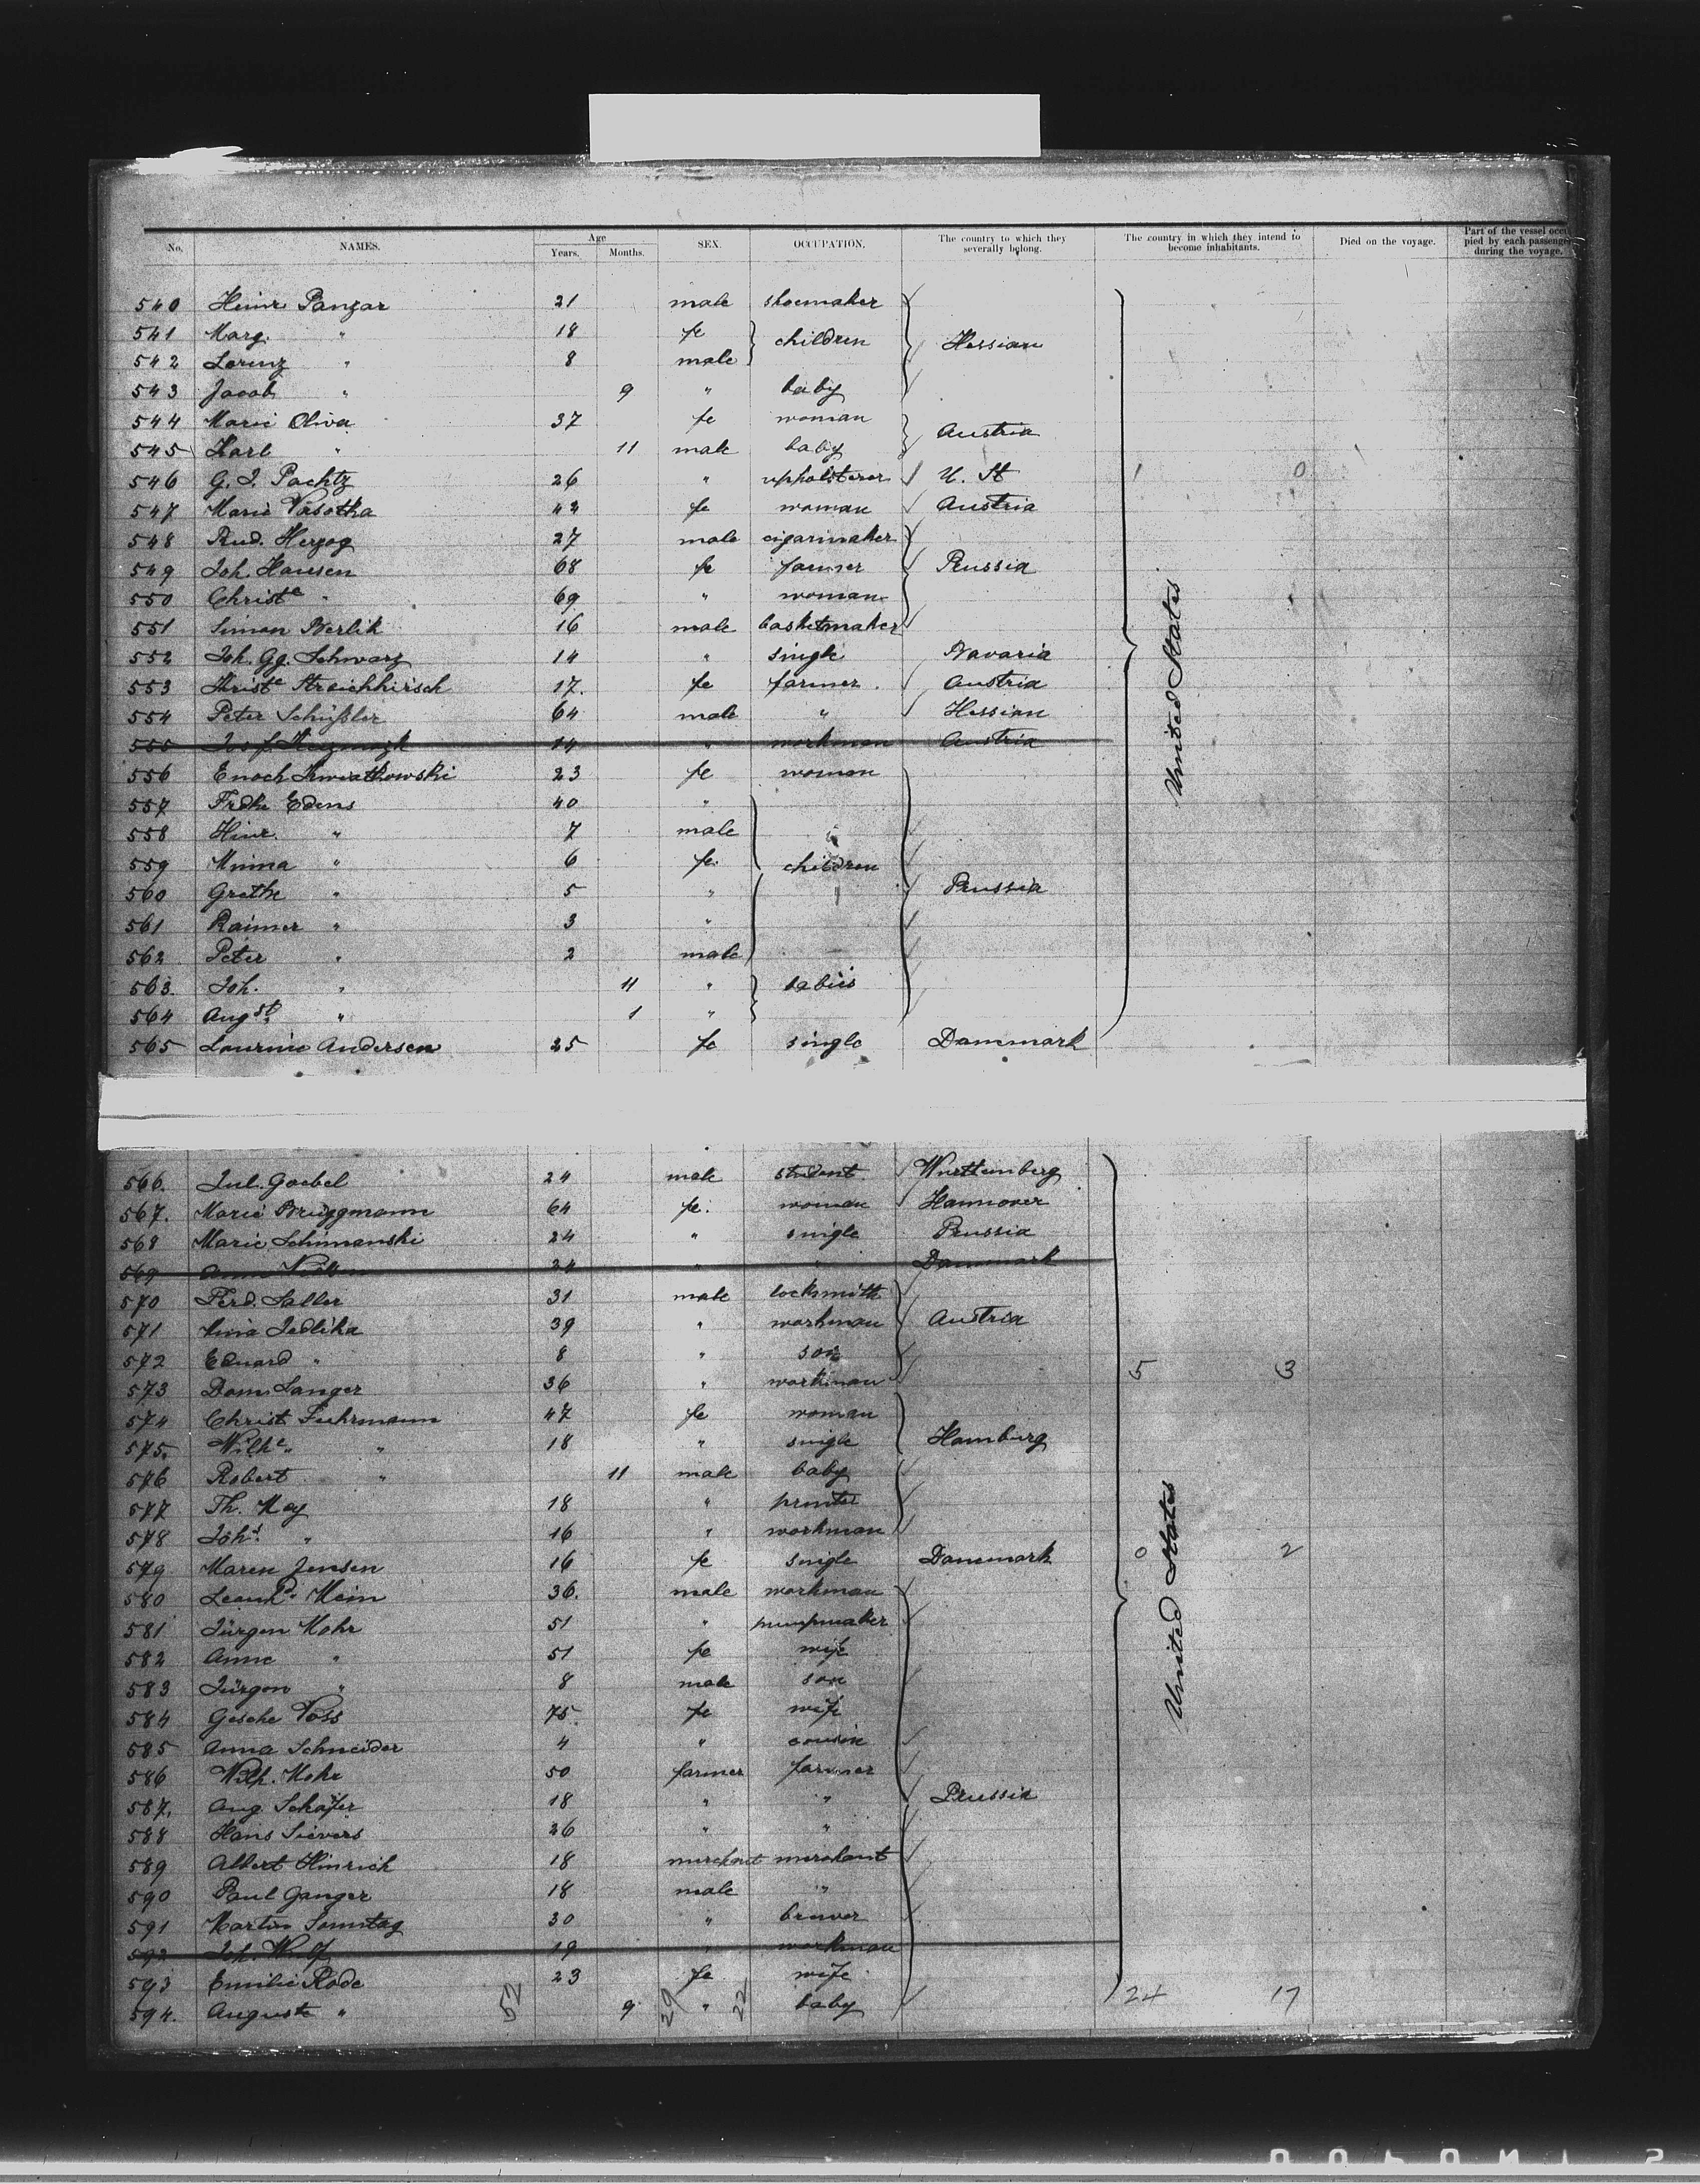 No. NAMES. Age Years. Months. SEX. OCCUPATION. The country to which they severally belong. The country in which they intend to become inhabitants. Died on the voyage. Part of the vessel occupied by each passenger during the voyage.
540 Heinr Panzar 21 male shoemaker
541 Marg. " 18 fe children Hessian
542 Lorenz " 8 male
543 Jacob " 9 " baby
544 Marie Oliva 37 fe woman Austria
545 Karl " 11 male baby
546 G. J. Pachtz 26 " upholsterer U. St 1 0
547 Marie Vasotka 42 fe woman Austria
548 Rud. Herzog 27 male cigarmaker
549 Joh. Hansen 68 fe farmer Prussia
550 Christe " 69 " woman
551 Simon Berlik 16 male basketmaker
552 Joh. Gg. Schwarz 14 " single Bavaria
553 Kriste Streichhirsch 17. fe farmer. Austria
554 Peter Schüßler 64 male " Hessian
555 14 " workman Austria
556 Enoch Kwiatkowski 23 fe woman
557 Fredke Edens 40 "
558 Hinr. " 7 male
559 Minna " 6 fe. children
560 Grethe " 5 " Prussia
561 Raimer " 3 "
562 Peter " 2 male
563. Joh. " 11 " babies
564 Augst. " 1 "
565 Laurine Andersen 25 fe single Danmark
United States
566. Jul. Goebel 24 male student Württemberg
567. Marie Brüggmann 64 fe. woman Hannover
568 Marie Schimanski 24 " single Prussia
569 24 " " Danmark
570 Ferd. Saller 31 male locksmith
571 Jedlika 39 " workman Austria
572 Eduard " 8 " son 5 3
573 Dom. Langer 36 " workman
574 Christ Fuhrmann 47 fe woman
575. Wilhe. " 18 " single Hamburg
576 Robert " 11 male baby
577 Th. May 18 " printer
578 Johs. " 16 " workman
579 Maren Jensen 16 fe single Danemark 0 2
580 Mein 36. male workman
581 Jürgen Mohr 51 " pumpmaker
582 Anne " 51 fe wife
583 Jürgen " 8 male son
584 Gesche Voss 75 fe wife
585 Anna Schneider 4 " cousin
586 Wilh. Mohr 50 farmer farmer
587. Aug. Schäfer 18 " " Prussia
588 Hans Sievers 26 " "
589 Albert Hinrich 18 merchant merchant
590 Paul Ganger 18 male "
591 Martin Sonntag 30 " brewer
592 Joh. Wolf 19 " workman
593 Emilie Rode 23 fe wife
594. Auguste " 52 9 29 " 22 baby 24 17
United States